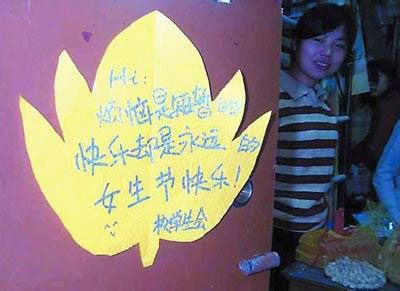 Hi:
烦恼是短暂的
快乐却是永远的
女生节快乐!
机学生会